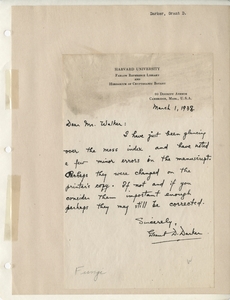 Darker, Grant D.
HARVARD UNIVERSITY
FARLOW REFERENCE LIBRARY
AND
HERBARIUM OF CRYPTOGAMIC BOTANY
20 DIVINITY AVENUE
CAMBRIDGE, MASS., U.S.A.
March 1, 1938
Dear Mr. Walker:
I have just been glancing
over the moss index and have noted
a few minor errors on the manuscript.
Perhaps they were changed on the
printer's copy. If not and if you
consider them important enough
perhaps they may still be corrected.
Sincerely,
Grant D. Darker